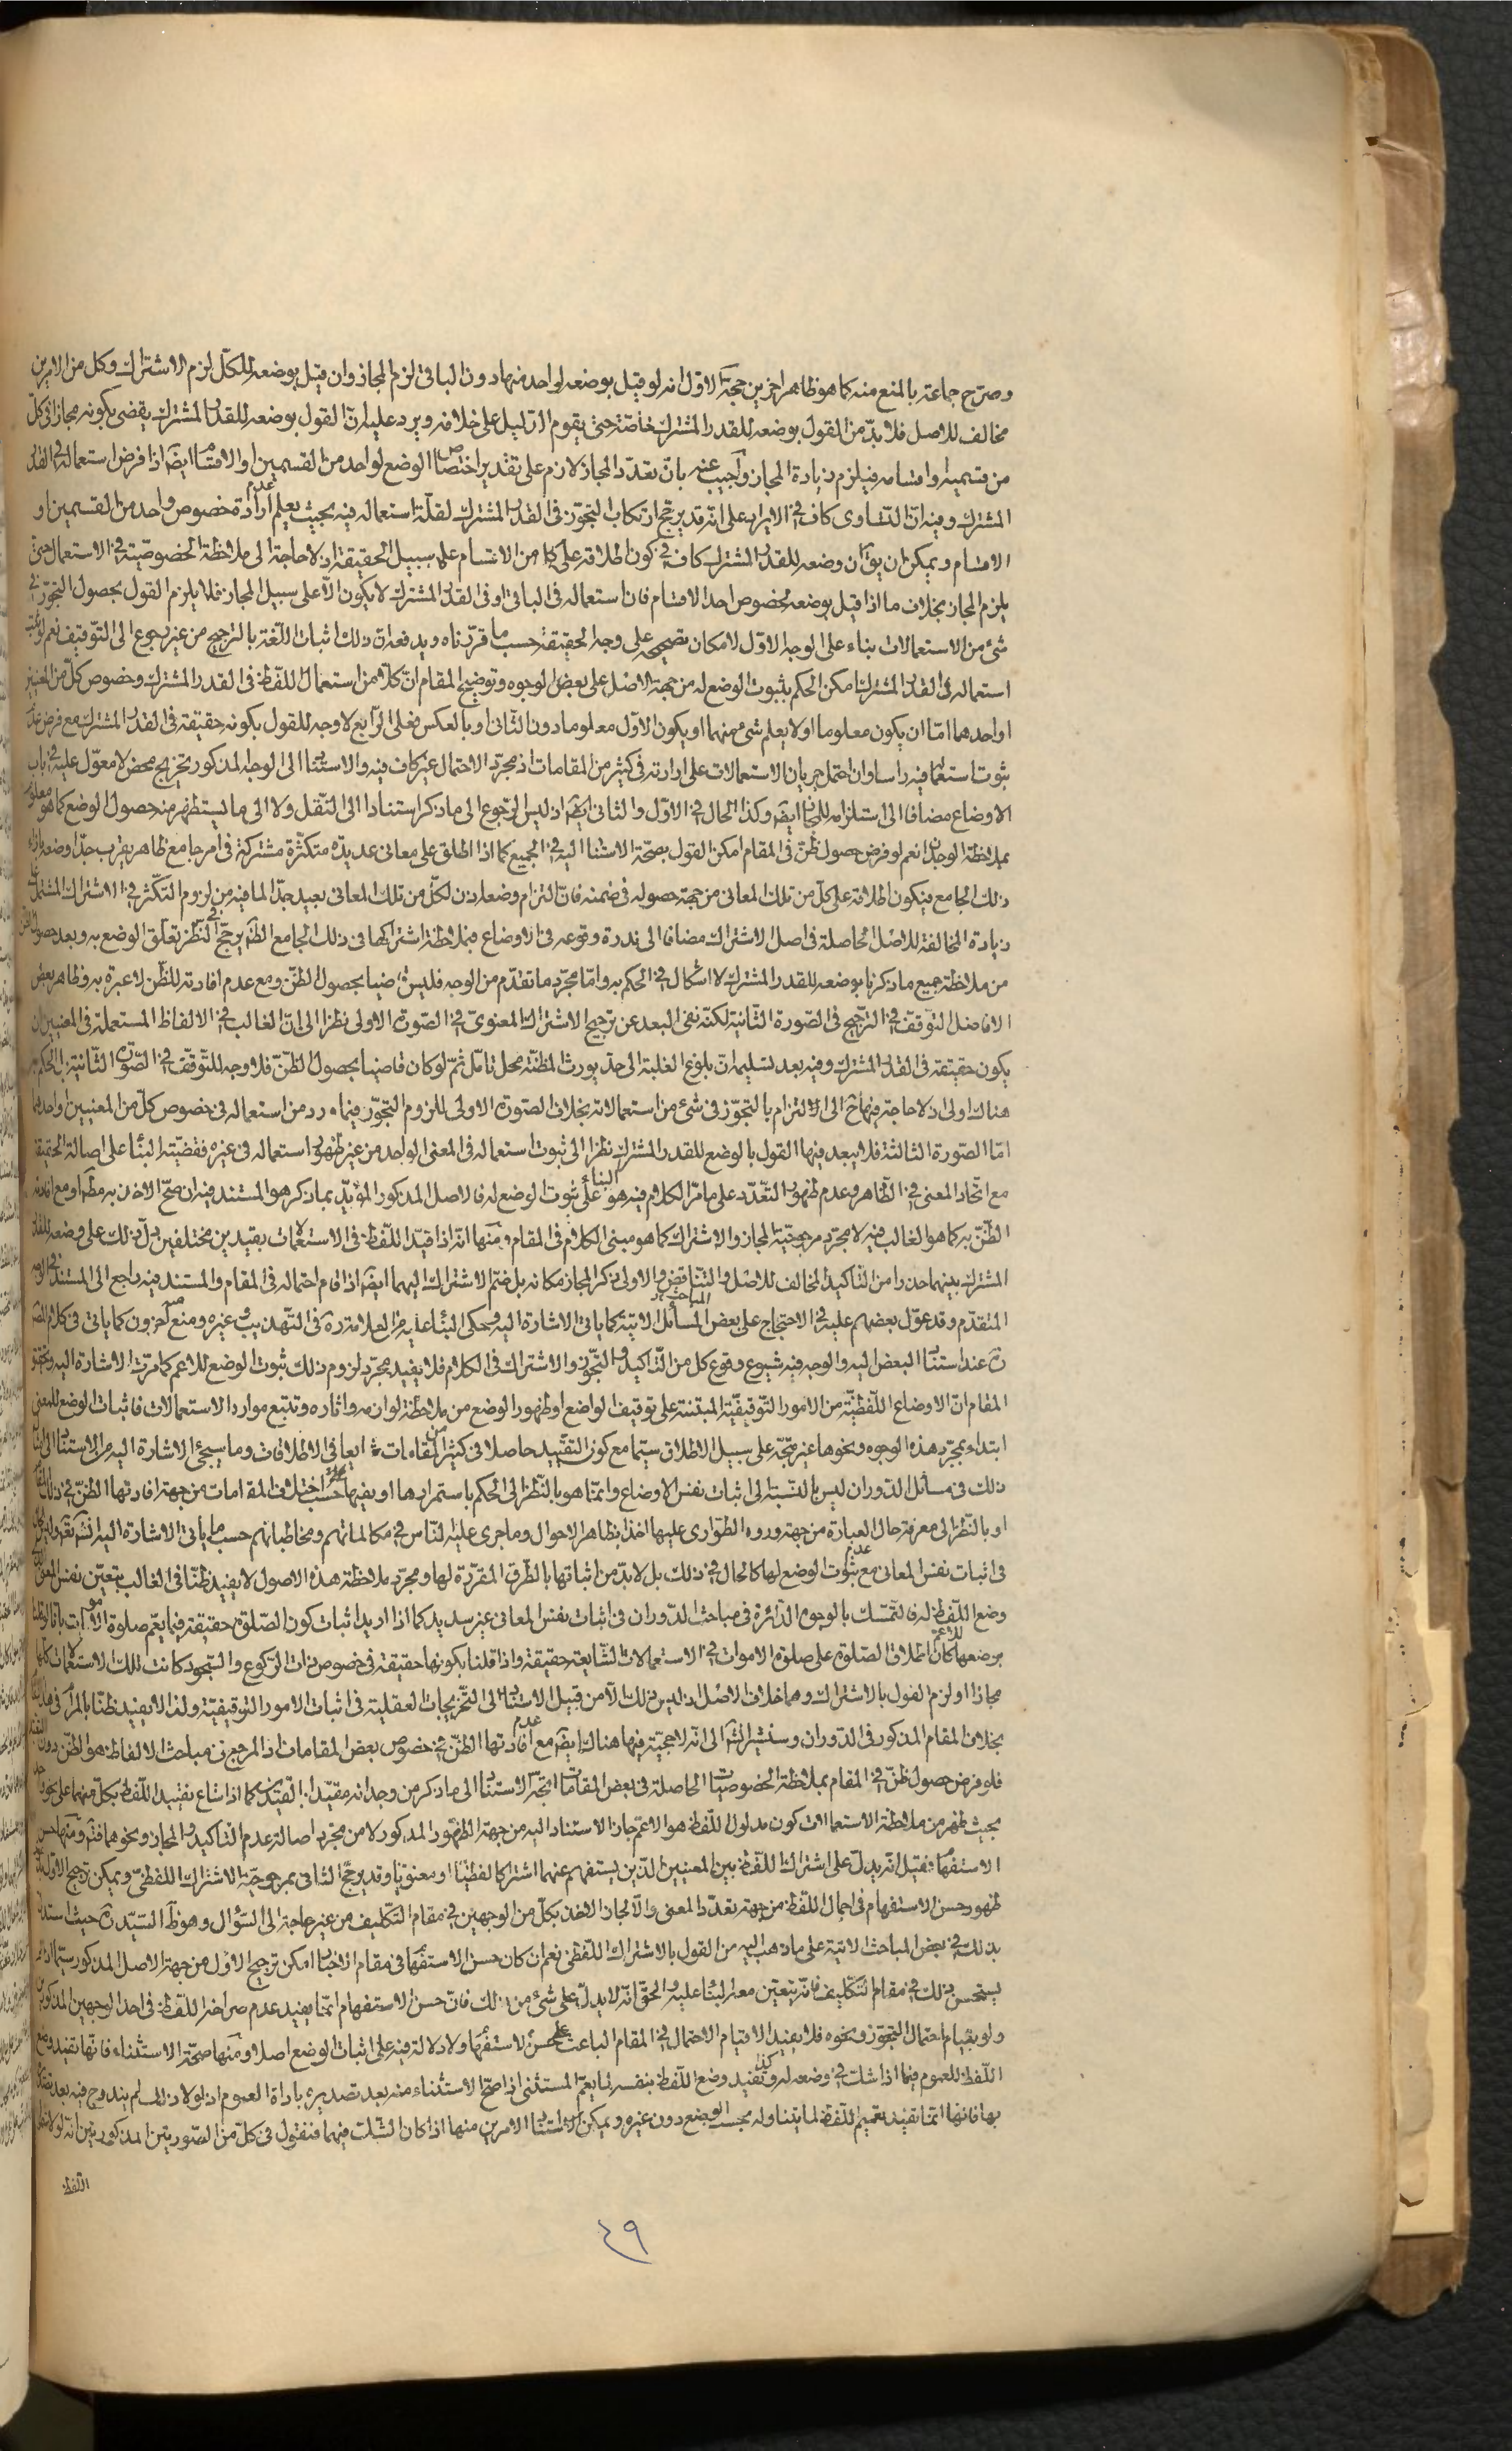 وصرّح جماعة بالمنع منه كما هو ظاهر اخرين حجّة الاوّل انه لو قيل بوضعه لواحد منهما دون الباقى لزم المجاز وان قيل بوضعه للكلّ لزم الاشتراك وكل من الامرين
مخالف للاصل فلا بدّ من القول بوضعه للقدر المشترك خاصّة حتى يقوم الدّليل على خلافه ويرد عليه انّ القول بوضعه للقدر المشترك يقضى بكونه مجازا فى كلّ
من قسميه او اقسامه فيلزم زيادة المجاز واجيب عنه بانّ تعدّد المجاز لازم على تقدير اختصاص الوضع لواحد من القسمين او الاقسام ايضا اذا فرض استعماله فى القدر
المشترك وفيه انّ التساوى كاف فى الايراد على انّه قد يرجّح ارتكاب التجوّز فى القدر المشترك لقلّة استعماله فيه بحيث يعلم عدم ارادة خصوص واحد من القسمين او
الاقسام ويمكن ان يق انّ وضعه للقدر المشترك كاف فى كون اطلاقه على كل من الاقسام على سبيل الحقيقة اذ لا حاجة الى ملاحظة الخصوصيّة فى الاستعمال حتى
يلزم المجاز بخلاف ما اذا قيل بوضعه لخصوص احد الاقسام فانّ استعماله فى الباقى او فى القدر المشترك لا يكون الّا على سبيل المجاز فلا يلزم القول بحصول التجوّز فى
شئ من الاستعمالات بناء على الوجه الاوّل لامكان تصحيحه على وجه الحقيقة حسب ما قرّرناه ويدفعه انّ ذلك اثبات اللّغة بالترجيح من غير رجوع الى التّوقيف نعم لو ثبت
استعماله فى القدر المشترك امكن الحكم بثبوت الوضع له من جهة الاصل على بعض الوجوه وتوضيح المقام انّ كلّا من استعمال اللفظ فى القدر المشترك وخصوص كلّ من المعنيين
او احدهما امّا ان يكون معلوما او لا يعلم شئ منهما او يكون الاوّل معلوما دون الثّانى او بالعكس فعلى الرّابع لا وجه للقول بكونه حقيقة فى القدر المشترك مع فرض عدم
ثبوت استعماله فيه راسا وان احتمل جريان الاستعمالات على ارادته فى كثير من المقامات اذ مجرّد الاحتمال غير كاف فيه والاستناد الى الوجه المذكور تخريج محض لا معوّل عليه فى باب
الاوضاع مضافا الى استلزامه للمجاز ايضا وكذا الحال فى الاوّل والثانى ايضا اذ ليس الرّجوع الى ما ذكر استنادا الى النّقل ولا الى ما يستظهر منه حصول الوضع كما هو معلوم
بملاحظة الوجدان نعم لو فرض حصول ظنّ فى المقام امكن القول بصحّة الاستناد اليه فى الجميع كما اذا اطلق على معانى عديدة متكثّرة مشتركة فى امر جامع ظاهر يقرب جدّا وضعه بازاء
ذلك الجامع فيكون اطلاقه على كلّ من تلك المعانى من جهة حصوله فى ضمنه فانّ التزام وضعه اذن لكلّ من تلك المعانى بعيد جدّا لما فيه من لزوم التكثّر فى الاشتراك المشتمل على
زيادة المخالفة للاصل الحاصلة فى اصل الاشتراك مضافا الى ندرة وقوعه فى الاوضاع فبملاحظة اشتراكها فى ذلك الجامع الظّاهر يرجّح فى النظر تعلّق الوضع به وبعد حصول الظن
من ملاحظة جميع ما ذكرنا بوضعه للقدر المشترك لا اشكال فى الحكم به وامّا مجرّد ما تقدّم من الوجه فليس قاضيا بحصول الظنّ ومع عدم افادته للظّن لا عبرة به وظاهر بعض
الافاضل التّوقف فى الترجيح فى الصّورة الثّانية لكنّه نفى البعد عن ترجيح الاشتراك المعنوىّ فى الصّورة الاولى نظرا الى انّ الغالب فى الالفاظ المستعملة فى المعنيين ان
يكون حقيقة فى القدر المشترك وفيه بعد تسليمه انّ بلوغ الغلبة الى حدّ يورث المظنّة محل تامّل ثمّ لو كان قاضيا بحصول الظنّ فلا وجه للتّوقف فى الصّورة الثّانية بل الحكم به
هناك اولى اذ لا حاجة فيها ح الى الالتزام بالتجوّز فى شئ من استعمالاته بخلاف الصّورة الاولى للزوم التجوّز فيما ورد من استعماله فى خصوص كلّ من المعنيين او احدهما
امّا الصّورة الثالثة فلا يبعد فيها القول بالوضع للقدر المشترك نظرا الى ثبوت استعماله فى المعنى الواحد من غير ظهور استعماله فى غيره فقضيّة البناء على اصالة الحقيقة
مع اتّحاد المعنى فى الظّاهر وعدم ظهور التّعدّد على ما مرّ الكلام فيه هو البناء على ثبوت الوضع له فالاصل المذكور المؤيّد بما ذكر هو المستند فيه ان صحّ الاخذ به مطلقا او مع افادته
الظّنّ به كما هو الغالب فيه لا مجرّد مرجوحيّة المجاز والاشتراك كما هو مبنى الكلام فى المقام ومنها انّه اذا قيّد اللّفظ فى الاستعمالات بقيدين مختلفين دلّ ذلك على وضعه للقدر
المشترك بينهما حذرا من التّاكيد المخالف للاصل والتّناقض والاولى ذكر المجاز مكانه بل ضمّ الاشتراك اليهما ايضا اذا قام احتماله فى المقام والمستند فيه راجع الى المستند فى الوجه
المتقدّم وقد عوّل بعضهم عليه فى الاحتجاج على بعض المسائل الاتية كما ياتى الاشارة اليه وحكى البناء عليه من العلامة ره فى التّهذيب وغيره ومنع منه اخرون كما ياتى فى كلام المصنف
ره عند استناد البعض اليه والوجه فيه شيوع وقوع كل من التّاكيد والتجّوز والاشتراك فى الكلام فلا يفيد مجرّد لزوم ذلك ثبوت الوضع للاعم كما مرّت الاشارة اليه وتحقيق
المقام انّ الاوضاع اللّفظيّة من الامور التّوقيفيّة المبتنية على توقيف الواضع او ظهور الوضع من ملاحظة لوازمه واثاره وتتبّع موارد الاستعمالات فاثبات الوضع للمعنى
ابتداء بمجرّد هذه الوجوه ونحوها غير متّجه على سبيل الاطلاق سيّما مع كون التقييد حاصلا فى كثير من المقامات شايعا فى الاطلاقات وما سيجئ الاشارة اليه من الاستناد الى
ذلك فى مسائل الدّوران ليس بالنّسبة الى اثبات نفس الاوضاع وانّما هو بالنّظر الى الحكم باستمرارها او بقائها على حسب اختلاف المقامات من جهة افادتها الظنّ فى ذلك
او بالنّظر الى معرفة حال العبارة من جهة ورود الطّوارى عليها اخذا بظاهر الاحوال وما جرى عليه النّاس فى مكالماتهم ومخاطباتهم حسب ما ياتى الاشارة اليه انشاء الله تعالى
فى اثبات نفس المعانى مع عدم ثبوت الوضع لها كالحال فى ذلك بل لا بدّ من اثباتها بالطّرق المقرّرة لها ومجرّد ملاحظة هذه الاصول لا يفيد ظنّا فى الغالب بتعيّن نفس المعنى
وضع اللّفظ له فالتمسّك بالوجوه الدّائرة فى مباحث الدّوران فى اثبات نفس المعانى غير سديد كما اذا اريد اثبات كون الصّلوة حقيقة فيما يعّم صلوة الاموات بانّا لو قلنا
بوضعها للاعمّ كان اطلاق الصّلوة على صلوة الاموات فى الاستعمالات الشّايعة حقيقة واذا قلنا بكونها حقيقة فى خصوص ذات الرّكوع والسّجود كانت تلك الاستعمالات كلها
مجازا او لزم القول بالاشتراك وهما خلاف الاصل اذ ليس ذلك الّا من قبيل الاستناد الى التّخريجات العقليّة فى اثبات الامور التوقيفيّة ولذا لا يفيد ظنّا بالمراد فى هذا المقام
بخلاف المقام المذكور فى الدّوران وسنشير انشاء الله الى انّه لا حجيّة فيها هناك ايضا مع عدم افادتها الظّنّ فى خصوص بعض المقامات اذ المرجع فى مباحث الالفاظ هو الظّن دون
فلو فرض حصول ظنّ فى المقام بملاحظة الخصوصيّات الحاصلة فى بعض المقامات اتّجه الاستناد الى ما ذكر من وجدانه مقيّدا بالقيدين كما اذا شاع تقييد اللّفظ بكلّ منهما على نحو واحد
بحيث ظهر من ملاحظة الاستعمالات كون مدلول اللّفظ هو الاعم جاز الاستناد اليه من جهة الظهور المذكور لا من مجرّد اصالة عدم التّاكيد والمجاز ونحوهما فتم ومنها حسن
الاستفهام فقيل انّه يدلّ على اشتراك اللّفظ بين المعنيين الّذين يستفهم عنهما اشتراكا لفظيّا او معنويّا وقد يرجّح الثّانى بمرجوحيّة الاشتراك اللفظىّ ويمكن ترجيح الاوّل بانّ
ظهور حسن الاستفهام فى اجمال اللّفظ من جهة تعدّد المعنى والّا لجاز الاخذ بكلّ من الوجهين فى مقام التّكليف من غير حاجة الى السّؤال وهو ظاهر السّيّد ره حيث استدل
بذلك فى بعض المباحث الاتية على ما ذهب اليه من القول بالاشتراك اللّفظى نعم ان كان حسن الاستفهام فى مقام الاخبار امكن ترجيح الاوّل من جهة الاصل المذكور سيّما اذا لم
يستحسن ذلك فى مقام التّكليف فانّه يتعيّن معه البناء عليه والحقّ انّه لا يدلّ على شئ من ذلك فانّ حسن الاستفهام انّما يفيد عدم صراحة اللّفظ فى احد الوجهين المذكورين
ولو بقيام احتمال التّجوّز ونحوه فلا يفيد الّا قيام الاحتمال فى المقام الباعث على حسن الاستفهام ولا دلالة فيه على اثبات الوضع اصلا ومنها صحّة الاستثناء فانّها تفيد وضع
اللّفظ للعموم فيما اذا شكّ فى وضعه له وكذا تفيد وضع اللّفظ بنفسه لما يعمّ المستثنى اذا صحّ الاستثناء منه بعد تصديره باداة العموم اذ لولا ذلك لم يندرج فيه بعد
بها فانّها انّما تفيد تعميم اللّفظ لما يتناوله بحسب الوضع دون غيره ويمكن الاستناد الامرين منها اذا كان الشّك فيهما فنقول فى كلّ من الصّورتين المذكورتين انّه لولا
اللّفظ
٤٩